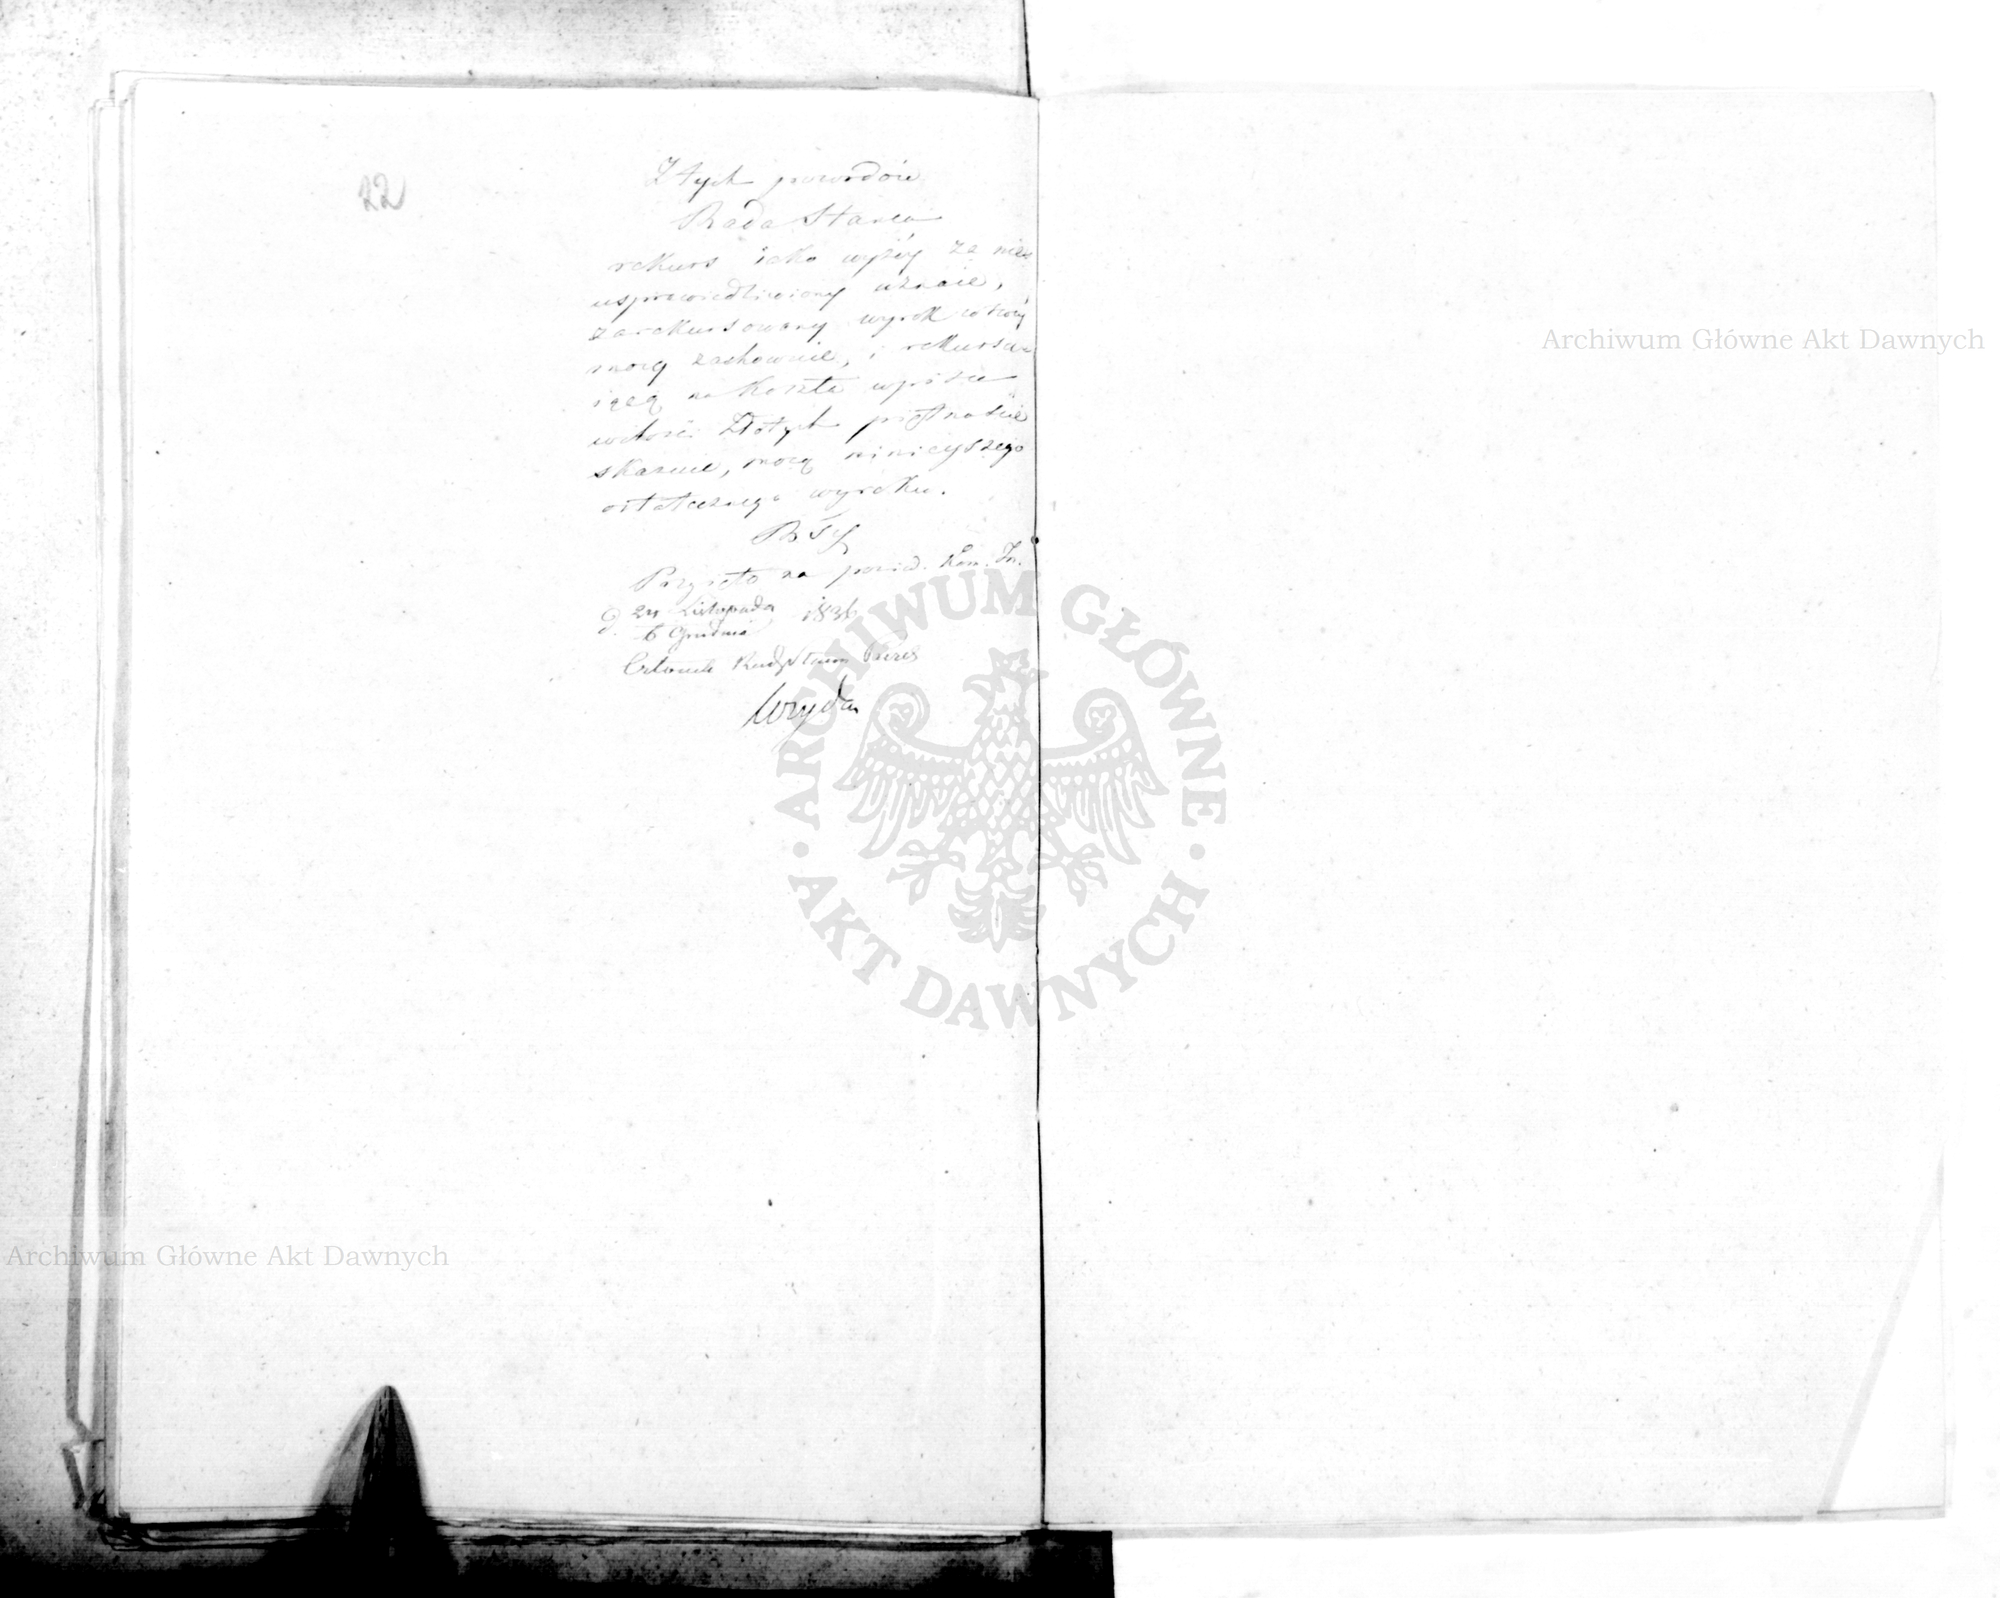 22
Z tych powodów
Rada Stanu
rekurs jako wyżéy za nie
usprawiedliwiony uznaie,
zarekursowany wyrok w swey
mocy zachowuie, i rekursu
iącą na koszta wpisu
w ilości Złotych piętnaście
skazuie, mocą ninieyszego
ostatecznego wyroku.
Przyięto na posied. Kom. In.
d. 24 Listopada 1836
6 Grudnia
Członek Rady Stanu Prezes
Archiwum Główne Akt Dawnych
ARCHIWUM GŁÓWNE
AKT DAWNYCH
Archiwum Główne Akt Dawnych